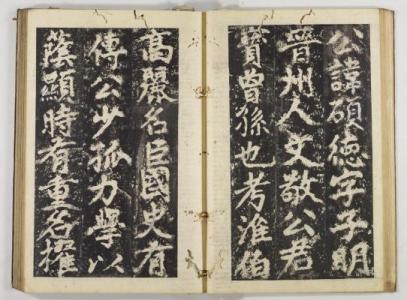 公諱碩德字子明
晉州人文敬公君
寶曾孫也考淮伯
高麗名臣國史有
傳公少孤力學以
蔭顯時有重名擢